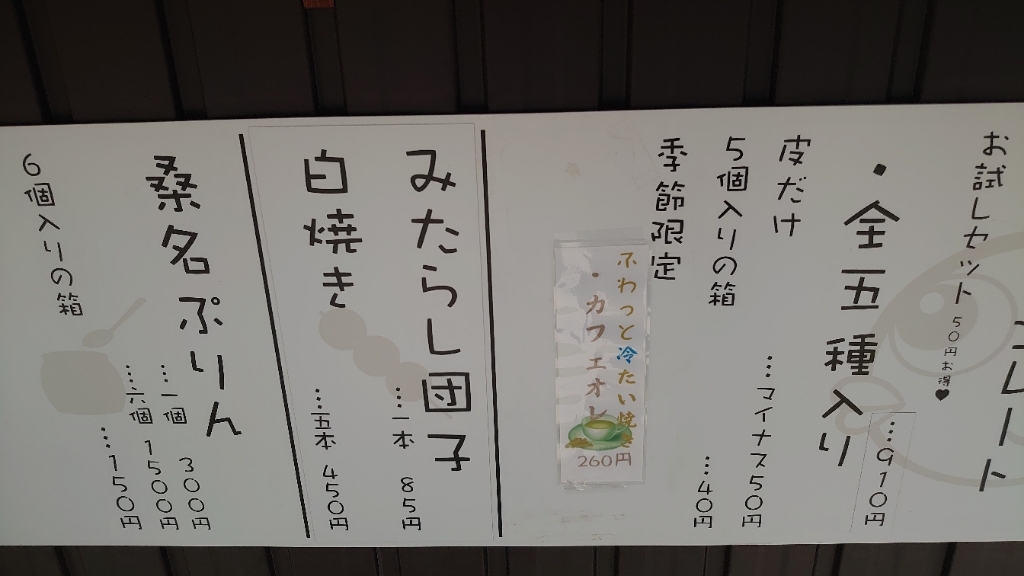 お試しセット 50円お得♥
・全五種入り
…910円
皮だけ
…マイナス50円
5個入りの箱
…40円
季節限定
ふわっと冷たい焼き
・カフェオレ
260円
みたらし団子
…一本 85円
白焼き
…五本 450円
桑名ぷりん
…一個 300円
…六個 1500円
6個入りの箱
…150円